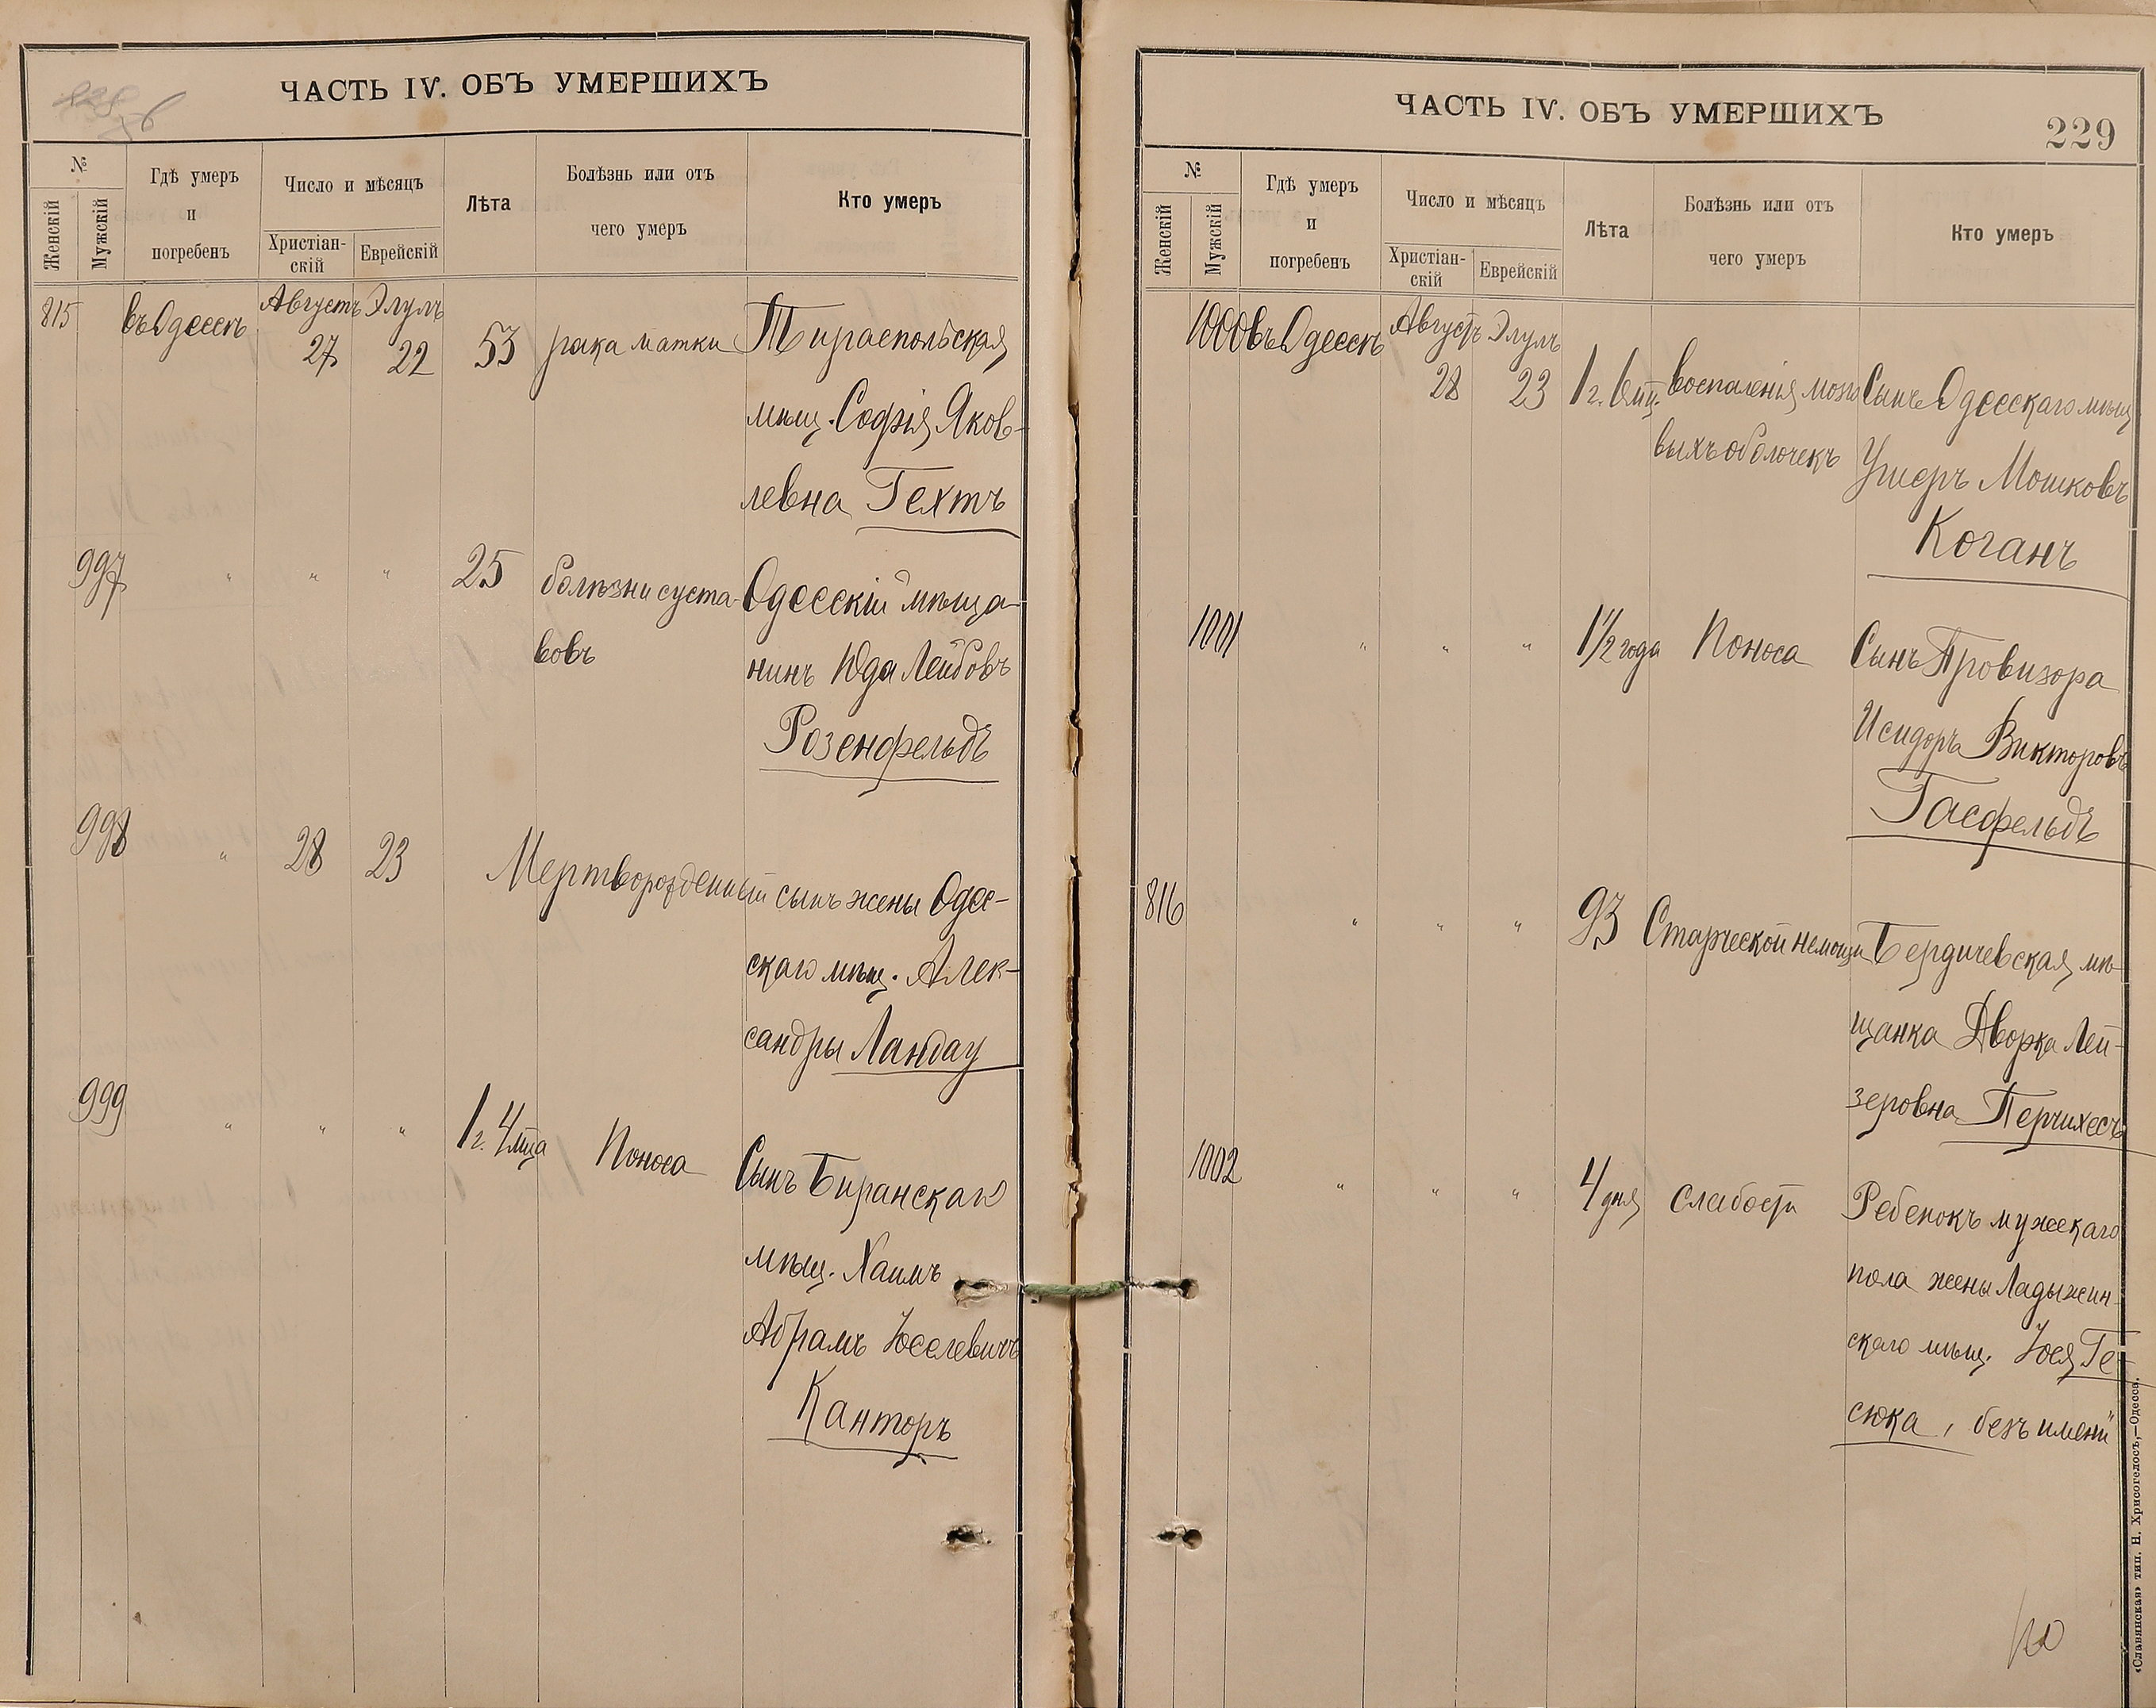 ЧАСТЬ IV. ОБЪ УМЕРШИХЪ
№
Женскій
Мужскій
Гдѣ умеръ
и
погребенъ
Число и мѣсяцъ
Христіан-
скій
Еврейскій
Лѣта
Болѣзнь или отъ
чего умеръ
Кто умеръ
815 въ Одессѣ Августъ Элулъ
27 22 53 рака матки Тираспольская
мѣщ. Софія Яков-
левна Гехтъ
997 " " " 25 болѣзни суста- Одесскій мѣща-
вовъ нинъ Юда Лейбовъ
Розенфельдъ
998 " 28 23 Мертворожденный сынъ жены Одес-
скаго мѣщ. Алек-
сандры Ландау
999 " " " 1 г. 4 мца Поноса Сынъ Тиранскаго
мѣщ. Хаимъ
Абрамъ Іоселевичъ
Канторъ
ЧАСТЬ IV. ОБЪ УМЕРШИХЪ
229
№
Женскій
Мужскій
Гдѣ умеръ
и
погребенъ
Число и мѣсяцъ
Христіан-
скій
Еврейскій
Лѣта
Болѣзнь или отъ
чего умеръ
Кто умеръ
1000 въ Одессѣ Августъ Элулъ
28 23 1 г. 6 мц. воспаленія мозго Сынъ Одесскаго мѣщ
выхъ оболочекъ Ушеръ Мошковъ
Коганъ
1001 " " " 1 1/2 года Поноса Сынъ Провизора
Исидоръ Викторовъ
Гасфельдъ
816 " " " 93 Старческой немощи Бердичевская мѣ-
щанка Дворка Лей-
зеровна Перчихесъ
1002 " " " 4 дня слабости Ребенокъ мужескаго
пола жены Ладыжин-
скаго мѣщ. Іося Ге-
сюка, безъ имени
«Славянская» тип. Н. Хрисогелосъ,—Одесса.